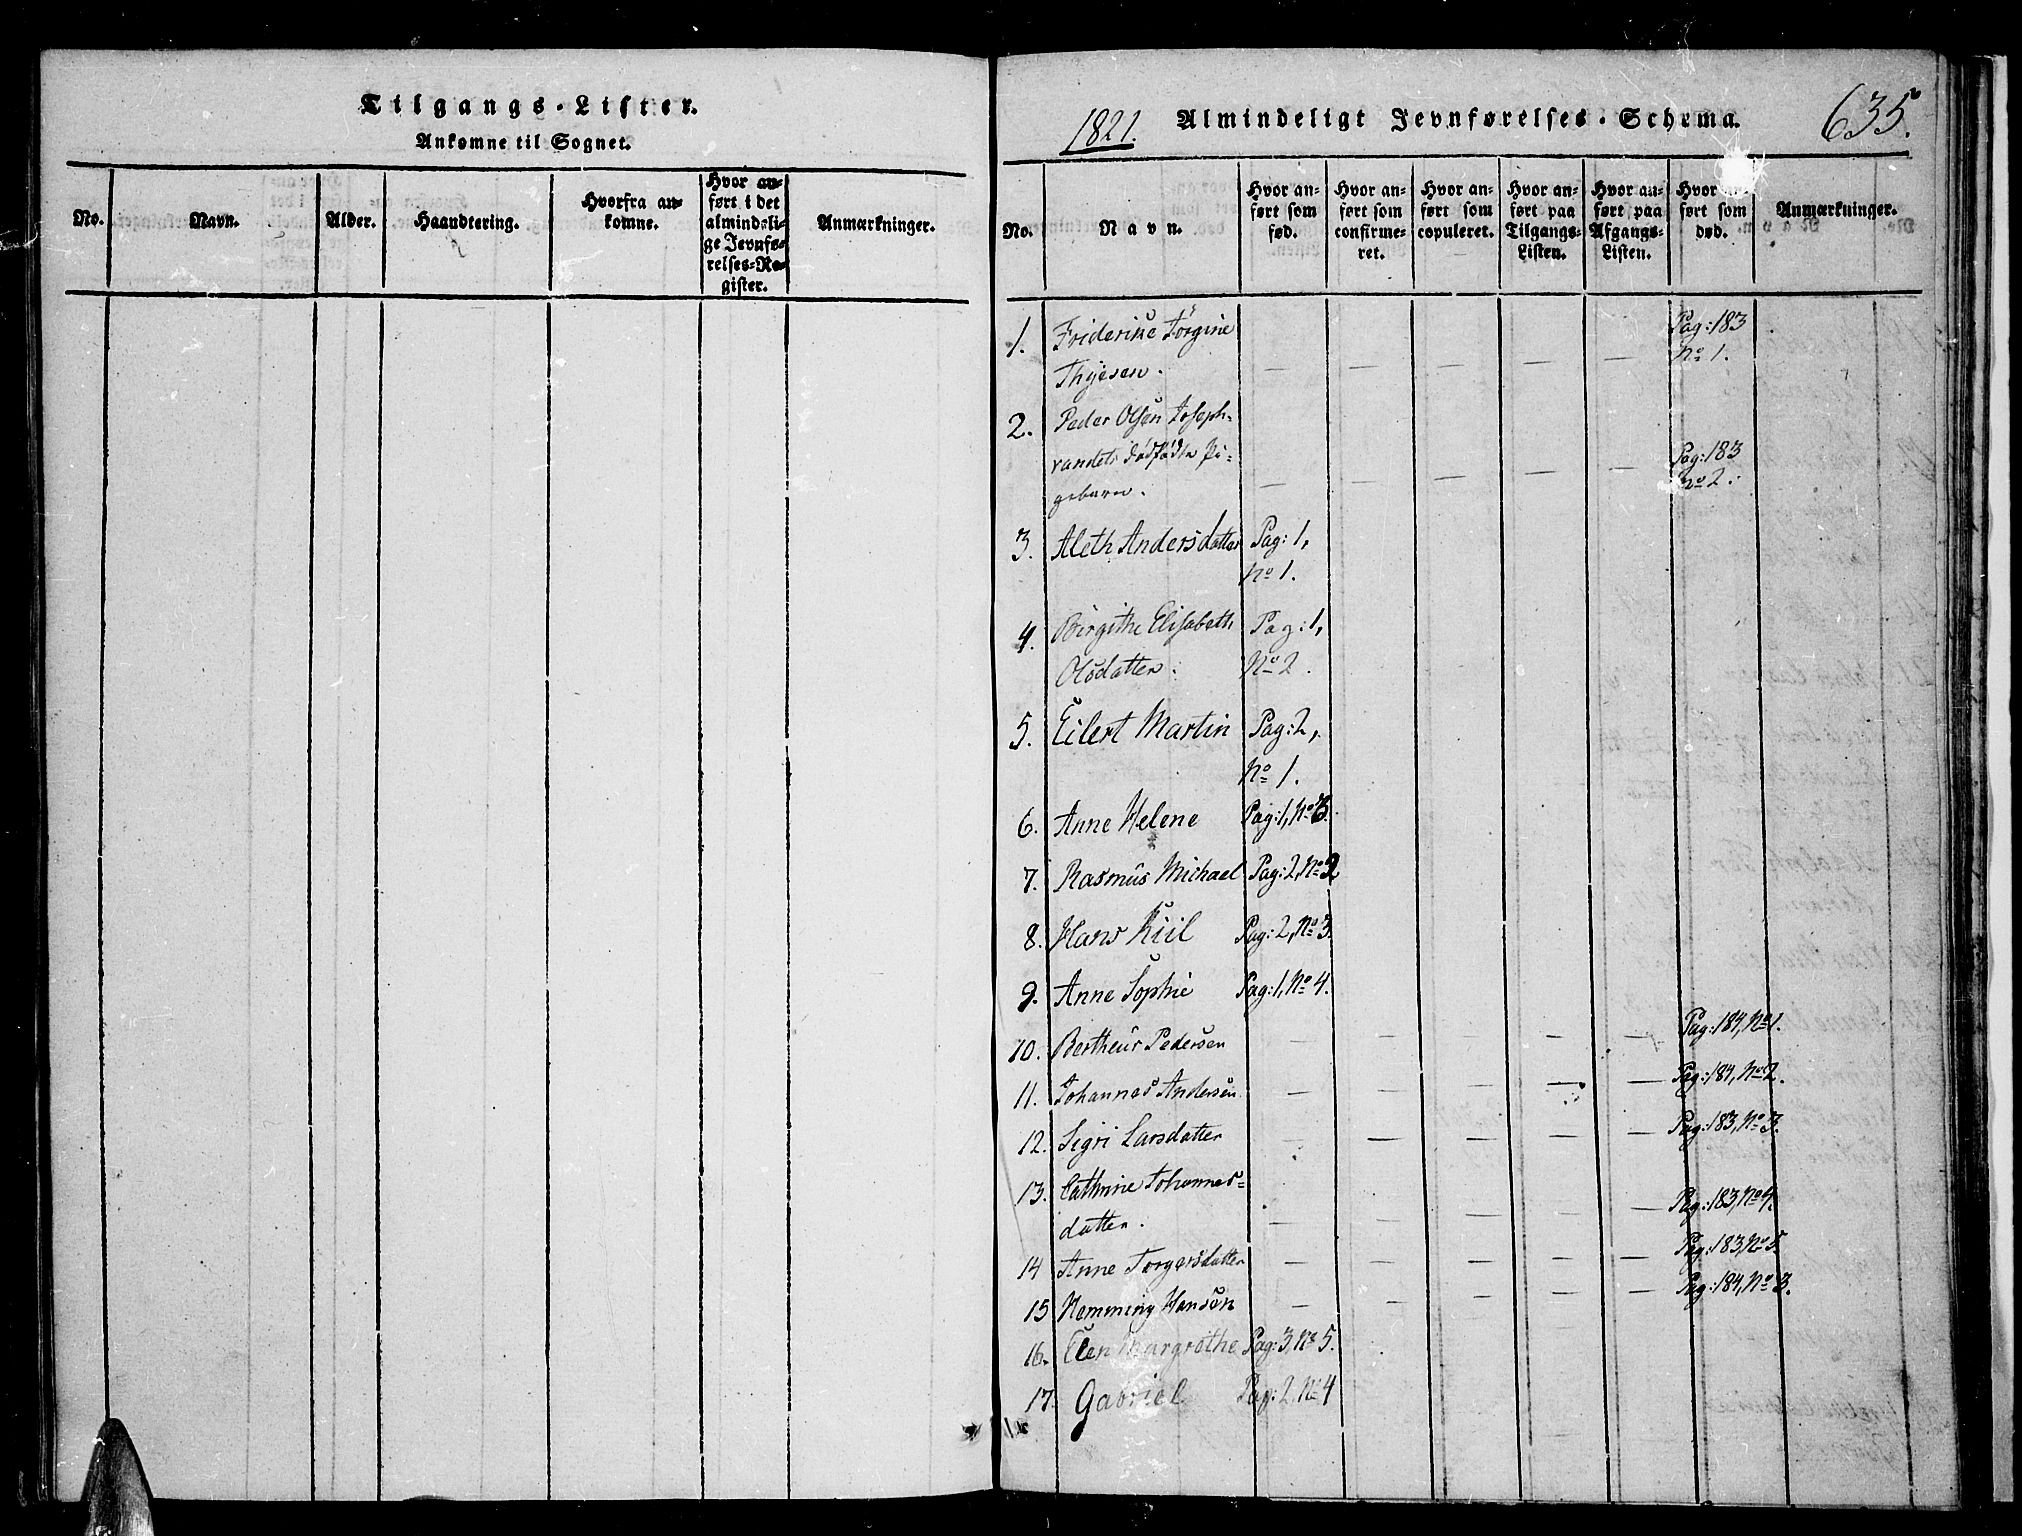 Tilgangs-Lister.
Ankomne til Sognet.
No.
Navn.
Alder.
Haandtering.
Hvorfra an-
komne.
Hvor an-
ført i det
almindeli-
ge Jevnfø-
relses-Re-
gister.
Anmærkninger.
1821. Almindeligt Jevnførelses-Schema. 635.
No.
Navn.
Hvor an-
ført som
fød.
Hvor an-
ført som
confirme-
ret.
Hvor an-
ført som
copuleret.
Hvor an-
ført paa
Tilgangs-
Listen.
Hvor an-
ført paa
Afgangs-
Listen.
Hvor an-
ført som
død.
Anmærkninger.
1. Friderike Jörgine Pag: 183
Thyesen. — — — — — No 1.
2. Peder Olsen Joseph-
vandets dødfødte Pi- Pag: 183
gebarn. — — — — — No 2.
3. Aleth Andersdatter Pag: 1,
No 1.
4. Birgithe Elisabeth Pag: 1,
Olsdatter. No 2.
5. Eilert Martin Pag: 2,
No 1.
6. Anne Helene Pag: 1, No 3.
7. Rasmus Michael Pag: 2, No 2
8. Hans Kiil Pag: 2, No 3.
9. Anne Sophie Pag: 1, No 4.
10. Bertheus Pedersen — — — — — Pag: 184, No 1.
11. Johannes Andersen — — — — — Pag: 184, No 2.
12. Sigri Larsdatter — — — — — Pag: 183, No 3.
13. Cathrine Johannes-
datter. — — — — — Pag: 183, No 4.
14 Anne Torgersdatter — — — — — Pag: 183, No 5.
15 Hemming Hansen — — — — — Pag: 184, No 3.
16. Elen Margrethe Pag: 3, No 5.
17. Gabriel Pag: 2, No 4